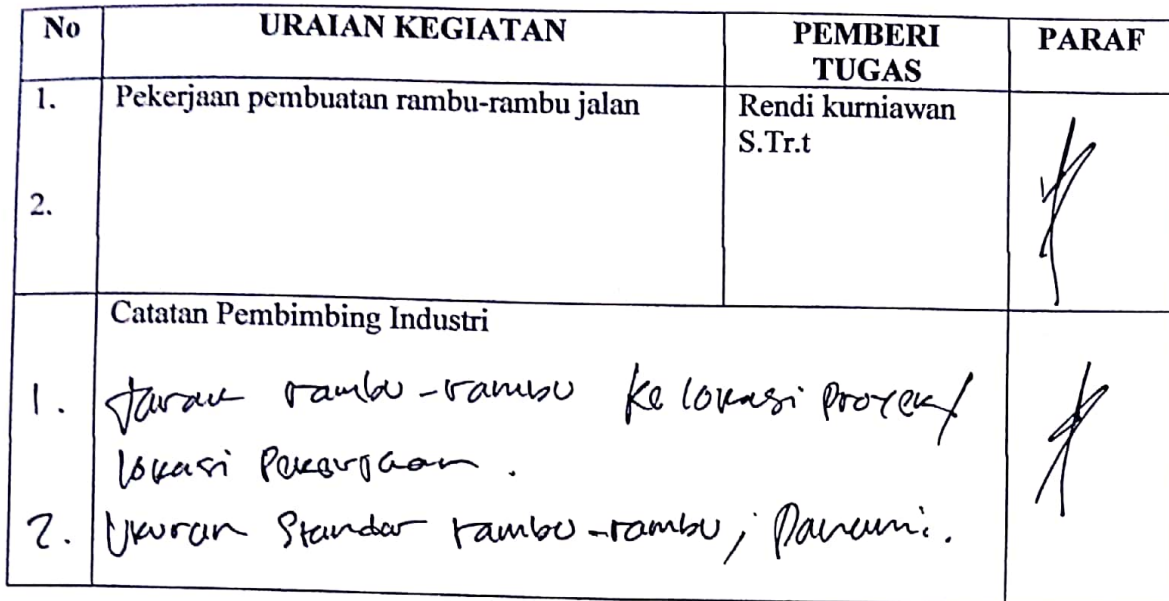 No URAIAN KEGIATAN PEMBERI TUGAS PARAF
1. Pekerjaan pembuatan rambu-rambu jalan Rendi kurniawan
S.Tr.t
2.
Catatan Pembimbing Industri
1. Jarak rambu-rambu ke lokasi proyek/
lokasi Pekerjaan.
2. Ukuran Standar rambu-rambu;